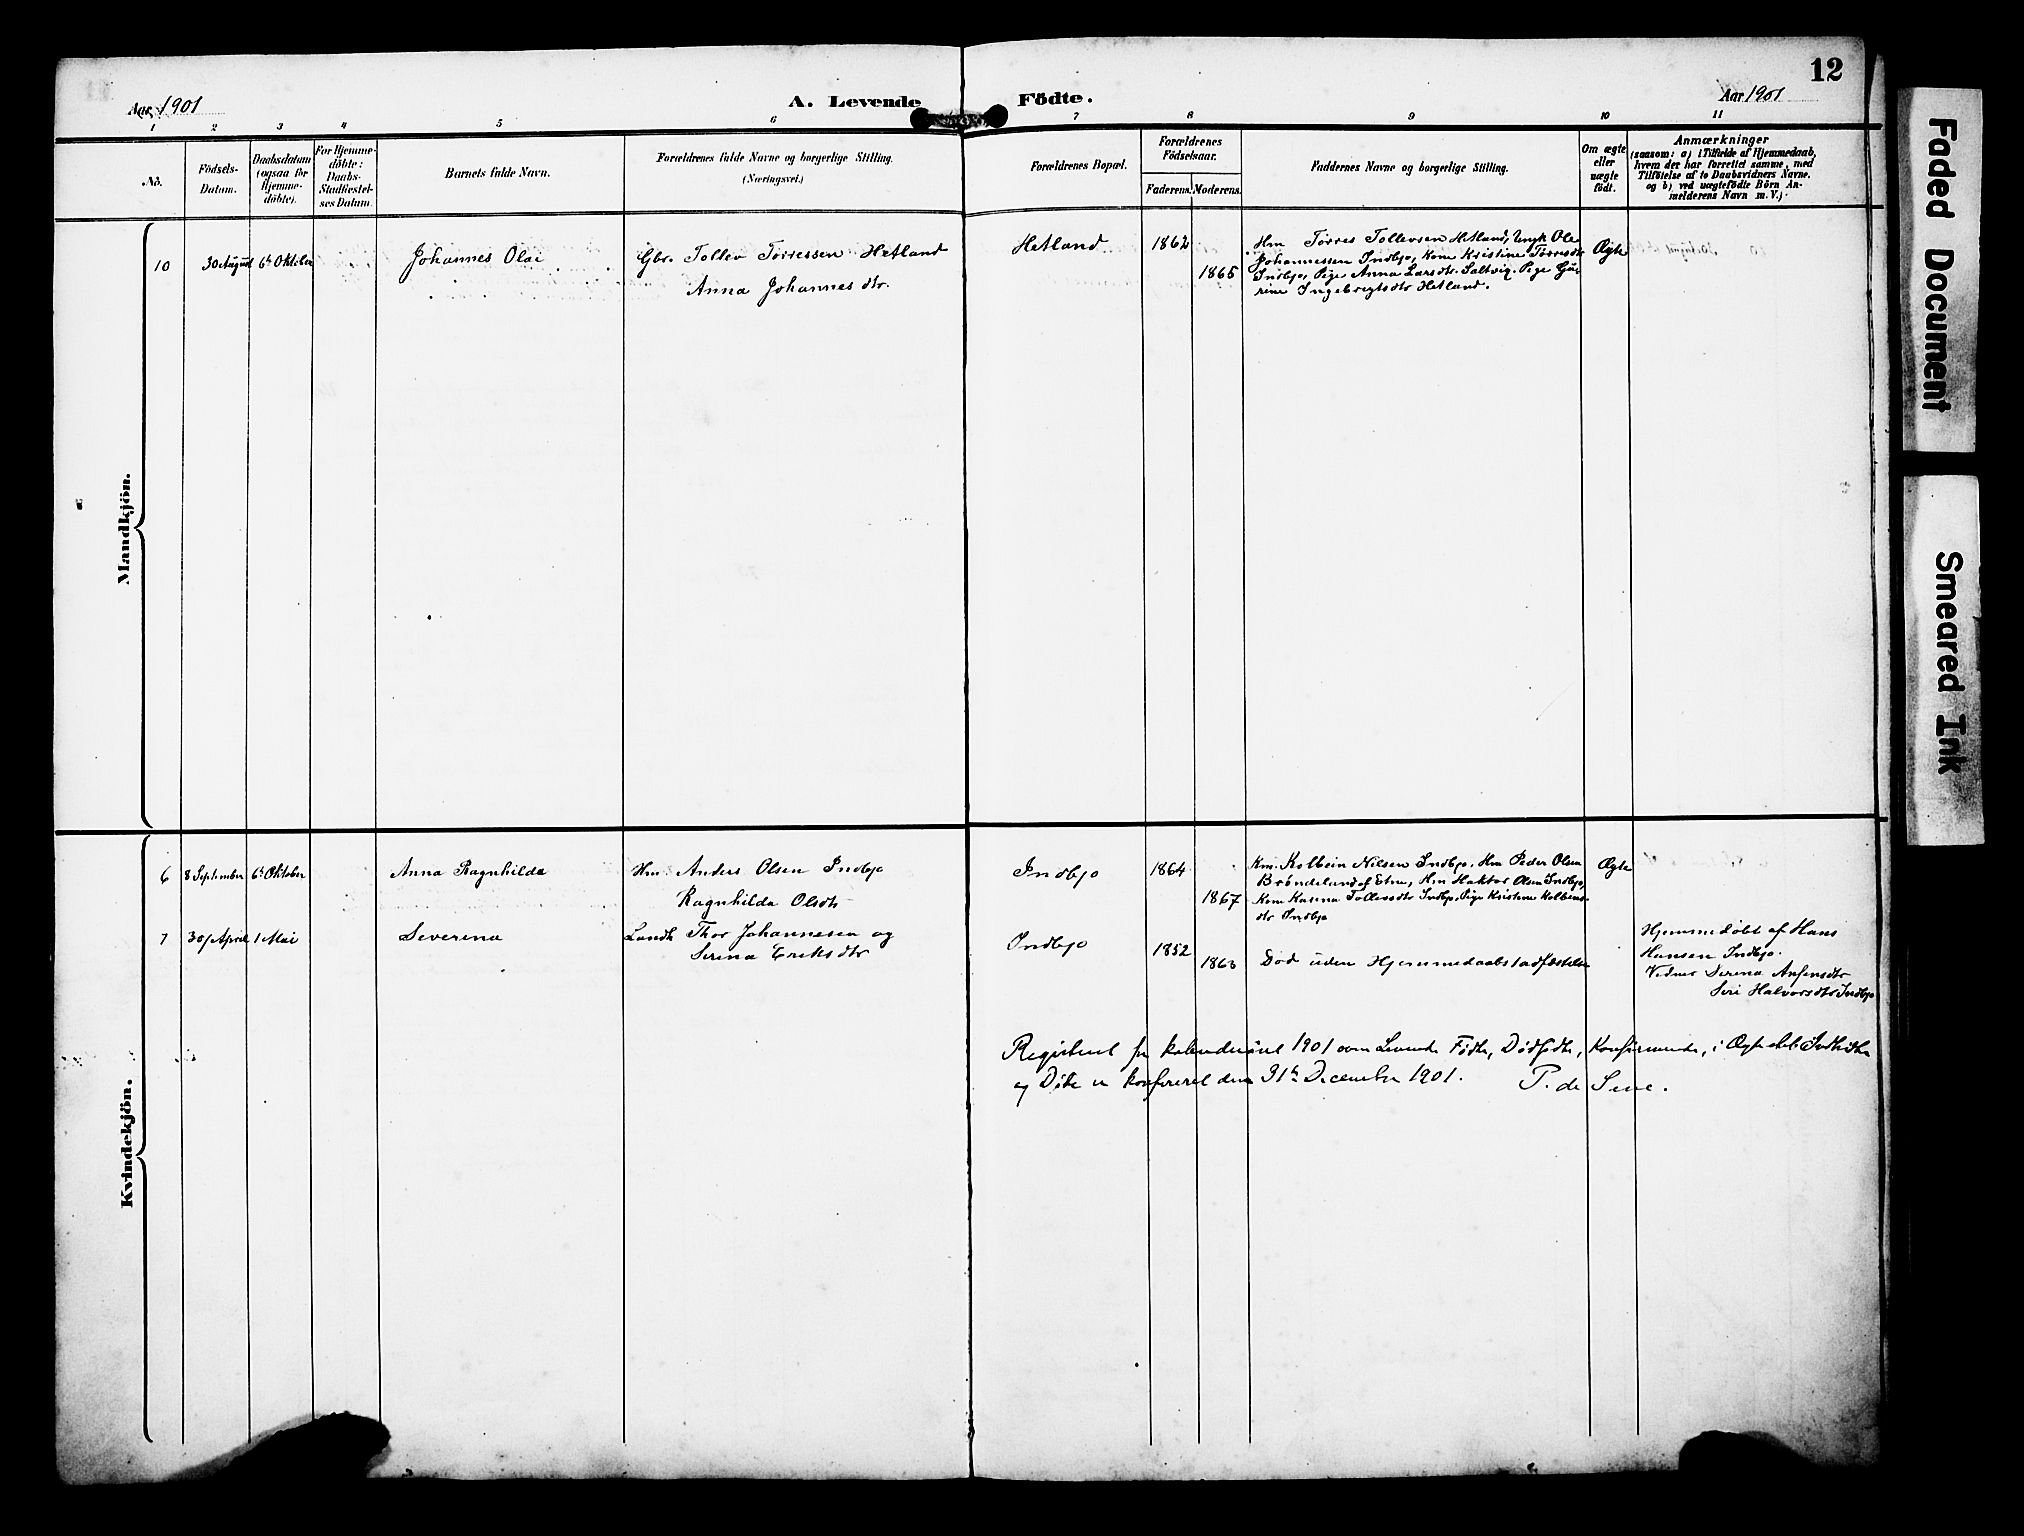 12
Aar 1901
A. Levende Födte.
Aar 1901
1 2 3 4 5 6 7 8 9 10 11
No.
Födsels-
Datum.
Daabsdatum
(ogsaa for
Hjemme-
döbte).
For Hjemme-
döbte:
Daabs-
Stadfæstel-
ses Datum.
Barnets fulde Navn.
Forældrenes fulde Navne og borgerlige Stilling.
(Næringsvei.)
Forældrenes Bopæl.
Forældrenes
Födselsaar.
Faderens. Moderens.
Faddernes Navne og borgerlige Stilling.
Om ægte
eller
uægte
födt.
Anmærkninger
(saasom: a) i Tilfælde af Hjemmedaab,
hvem der har forrettet samme, med
Tilföielse af to Daabsvidners Navne.
og b) ved uægtefödte Börn An-
melderens Navn m. V.)
Mandkjön.
10 30 August 6te Oktober Johannes Olai
Gbr. Tollev Torressen Hetland
Anna Johannesdtr.
Hetland 1862
1865
Hm Torres Tollevsen Hetland, Ungk Ole
Johannessen Indbjo, Kone Kristine Torresdtr
Indbjo, Pige Anna Larsdtr. Saltvig. Pige Gu-
rine Ingebregtsdtr Hetland.
Ægte
Kvindekjön.
6 8 September 6te Oktober Anna Ragnhilda
Hm. Anders Olsen Indbjo
Ragnhilda Olsdtr
Indbjo 1864
1867
Km. Kolbein Nilsen Indbjo. Hm Peder Olsen
Brøndeland af Etne, Hm Haktor Olsen Indbjo,
Kone Tollevsdtr Indbjo, Pige Kristine Kolbens-
dtr Indbjo
Ægte
7 30/April 1 Mai Severina
Landh Thor Johannesen og
Serina Eriksdtr
Indbjo 1852
Død uden Hjemmedaabstadfæstelse
Hjemmedøbt af Hans
Hansen Indbjo.
Vidner Serina
Siri Halvorsdtr Indbjo
Registeret for kalenderaaret 1901 over Levende Fødte, Dødfødte, Konfirmerede, i Ægteskab Indtraadte
og Døde er konfereret den 31te December 1901. P. de Seve.
Faded Document
Smeared Ink